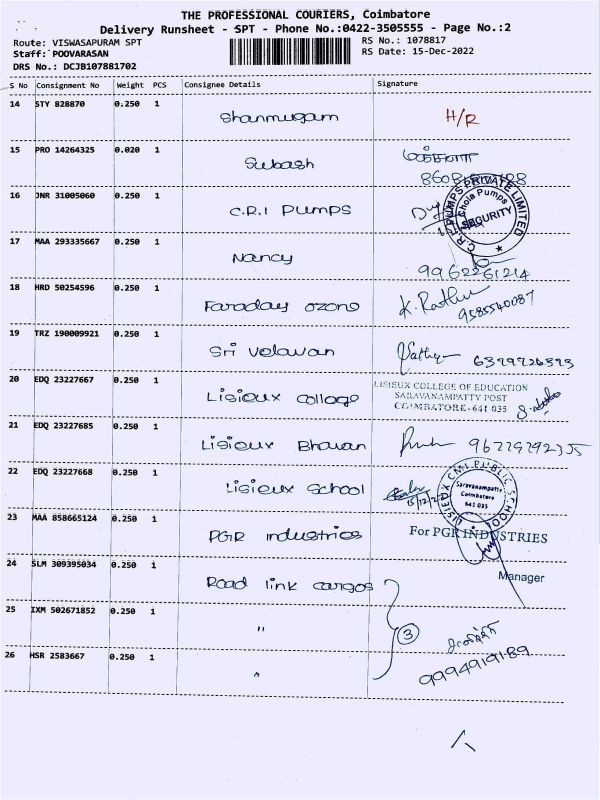 THE PROFESSIONAL COURIERS, Coimbatore
Delivery Runsheet - SPT - Phone No.:0422-3505555 - Page No.:2
Route: VISWASAPURAM SPT
RS No.: 1078817
Staff: POOVARASAN
RS Date: 15-Dec-2022
DRS No.: DCJB107881702
S No Consignment No Weight PCS Consignee Details Signature
14 STY 828870 0.250 1 Shanmugam H/R
15 PRO 14264325 0.020 1 Subash
16 JNR 31005060 0.250 1 C.R.I PUMPS
C.R.I PUMPS PRIVATE LIMITED
Chola Pumps
SECURITY
17 MAA 293335667 0.250 1 Nancy
9962261214
18 HRD 50254596 0.250 1 Faraday ozone
9585540087
19 TRZ 190009921 0.250 1 Sri Velavan
20 EDQ 23227667 0.250 1 Lisieux college
LISIEUX COLLEGE OF EDUCATION
SARAVANAMPATTY POST
COIMBATORE-641 035
21 EDQ 23227685 0.250 1 Lisieux Bhavan
22 EDQ 23227668 0.250 1 Lisieux School
LISIEUX CMI PUBLIC SCHOOL
Saravanampatty
Coimbatore
641 035
23 MAA 858665124 0.250 1 PGR industries
For PGR INDUSTRIES
Manager
24 SLM 309395034 0.250 1 Road link cargos
25 IXM 502671852 0.250 1 "
3
26 HSR 2583667 0.250 1 "
9994919189